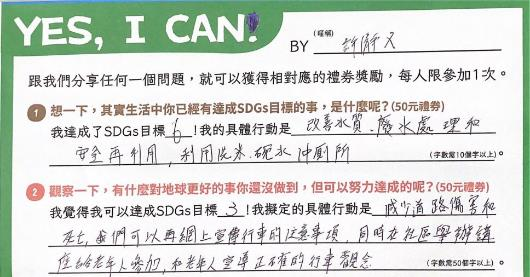 YES, I CAN!
BY (暱稱) 許靜文
跟我們分享任何一個問題，就可以獲得相對應的禮券獎勵，每人限參加1次。
1 想一下，其實生活中你已經有達成SDGs目標的事，是什麼呢？(50元禮券)
我達成了SDGs目標 6 ！我的具體行動是 改善水質、廢水處理和
安全再利用，利用洗米、碗水沖廁所 (字數需10個字以上)。
2 觀察一下，有什麼對地球更好的事你還沒做到，但可以努力達成的呢？(50元禮券)
我覺得我可以達成SDGs目標 3 ！我擬定的具體行動是 減少道路傷害和
死亡，我們可以再網上宣傳行車的注意事項，同時在社區舉辦講
座給老年人參加，和老年人宣導正確的行車觀念 (字數需50個字以上)。